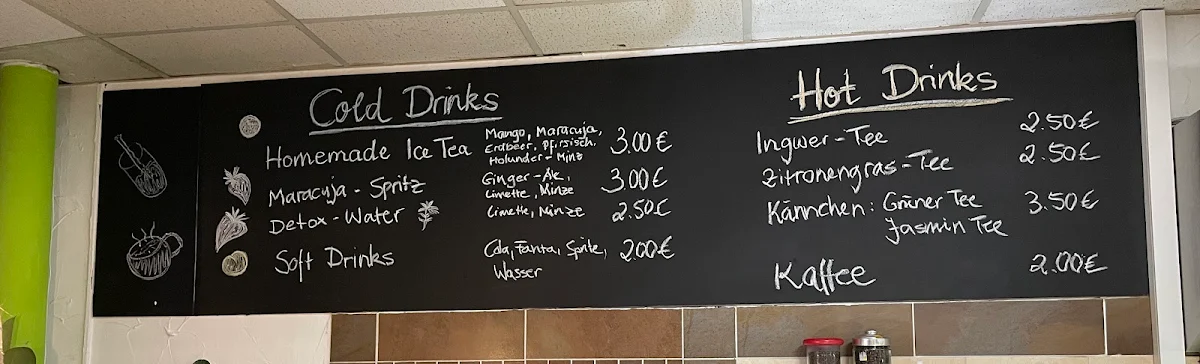 Cold Drinks
Homemade Ice Tea Mango, Maracuja, Erdbeer, Pfirsisch, Holunder-Minz 3.00€
Maracuja - Spritz Ginger-Ale, Limette, Minze 3.00€
Detox - Water Limette, Minze 2.50€
Soft Drinks Cola, Fanta, Sprite, Wasser 2.00€
Hot Drinks
Ingwer - Tee 2.50€
Zitronengras - Tee 2.50€
Kännchen: Grüner Tee 3.50€
Jasmin Tee
Kaffee 2.00€